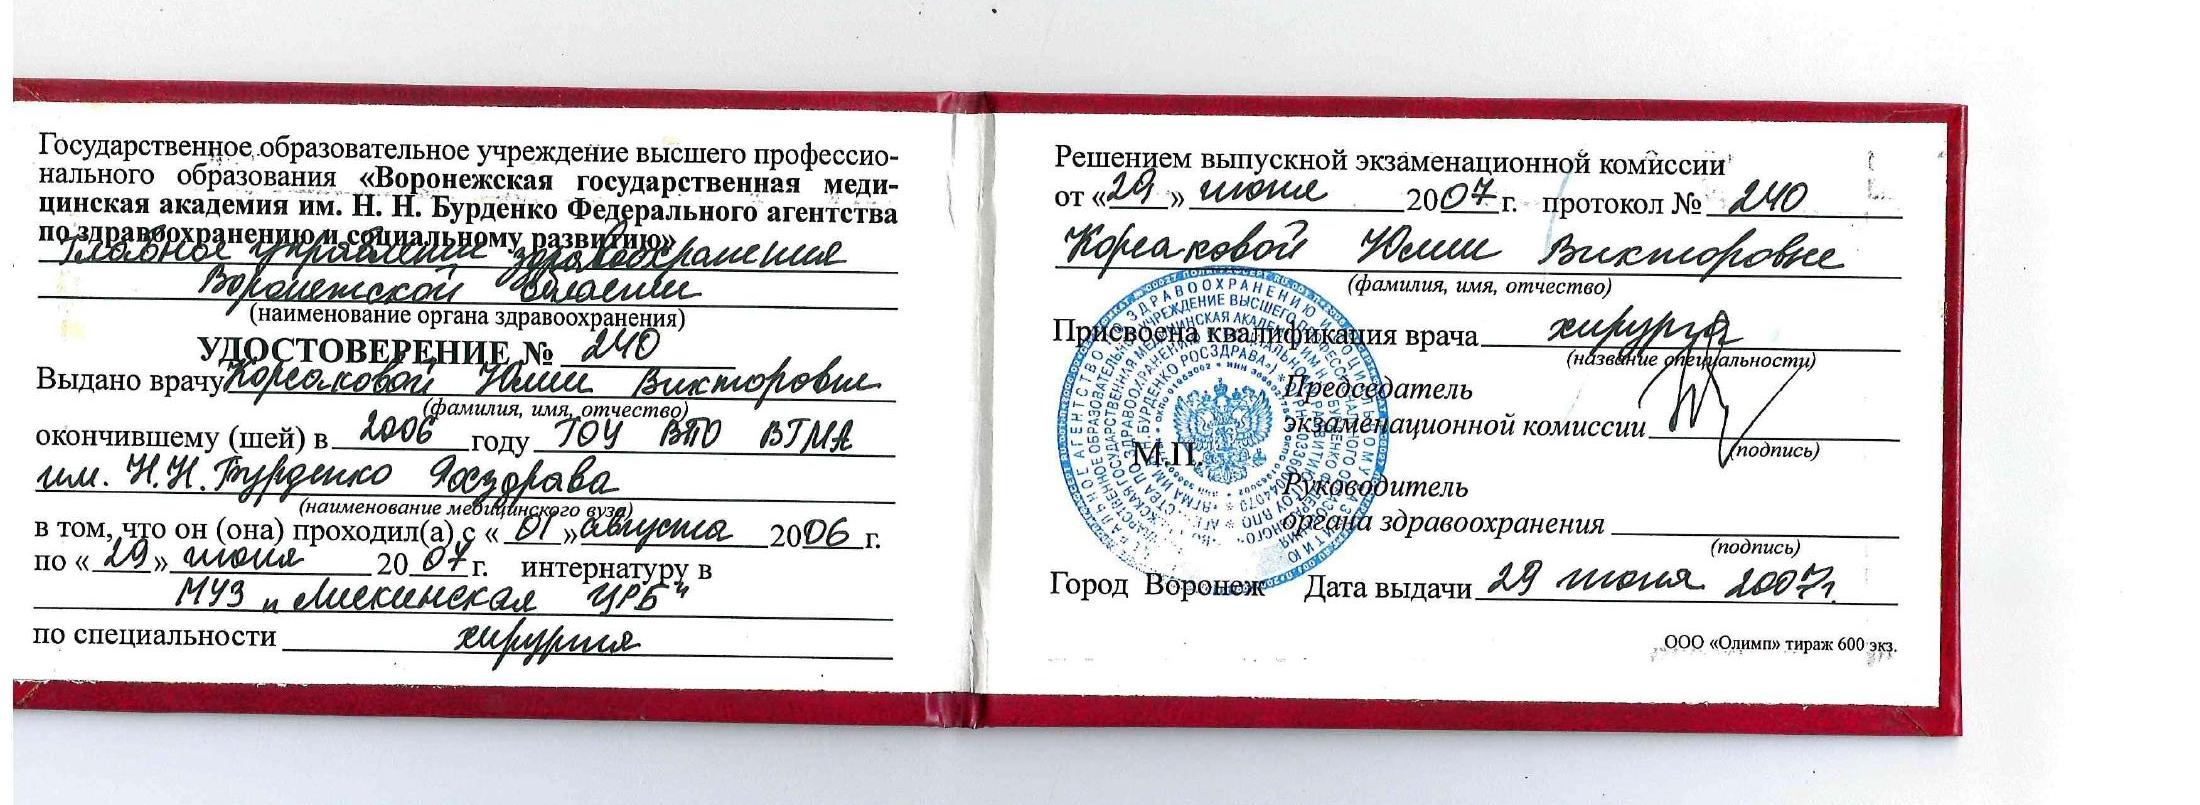 Государственное образовательное учреждение высшего профессио-
нального образования «Воронежская государственная меди-
цинская академия им. Н. Н. Бурденко Федерального агентства
по здравоохранению и социальному развитию»
Главное управление здравоохранения
Воронежской области
(наименование органа здравоохранения)
УДОСТОВЕРЕНИЕ № 240
Выдано врачу Корсаковой Юлии Викторовне
(фамилия, имя, отчество)
окончившему (шей) в 2006 году ГОУ ВПО ВГМА
им. Н.Н. Бурденко Росздрава
(наименование медицинского вуза)
в том, что он (она) проходил(а) с «01» августа 2006 г.
по «29» июня 2007 г. интернатуру в
МУЗ "Лискинская ЦРБ"
по специальности хирургия
Решением выпускной экзаменационной комиссии
от «29» июня 2007 г. протокол № 240
Корсаковой Юлии Викторовне
(фамилия, имя, отчество)
Присвоена квалификация врача хирурга
(название специальности)
Председатель
экзаменационной комиссии
(подпись)
М.П.
Руководитель
органа здравоохранения
(подпись)
Город Воронеж Дата выдачи 29 июня 2007г.
ООО «Олимп» тираж 600 экз.